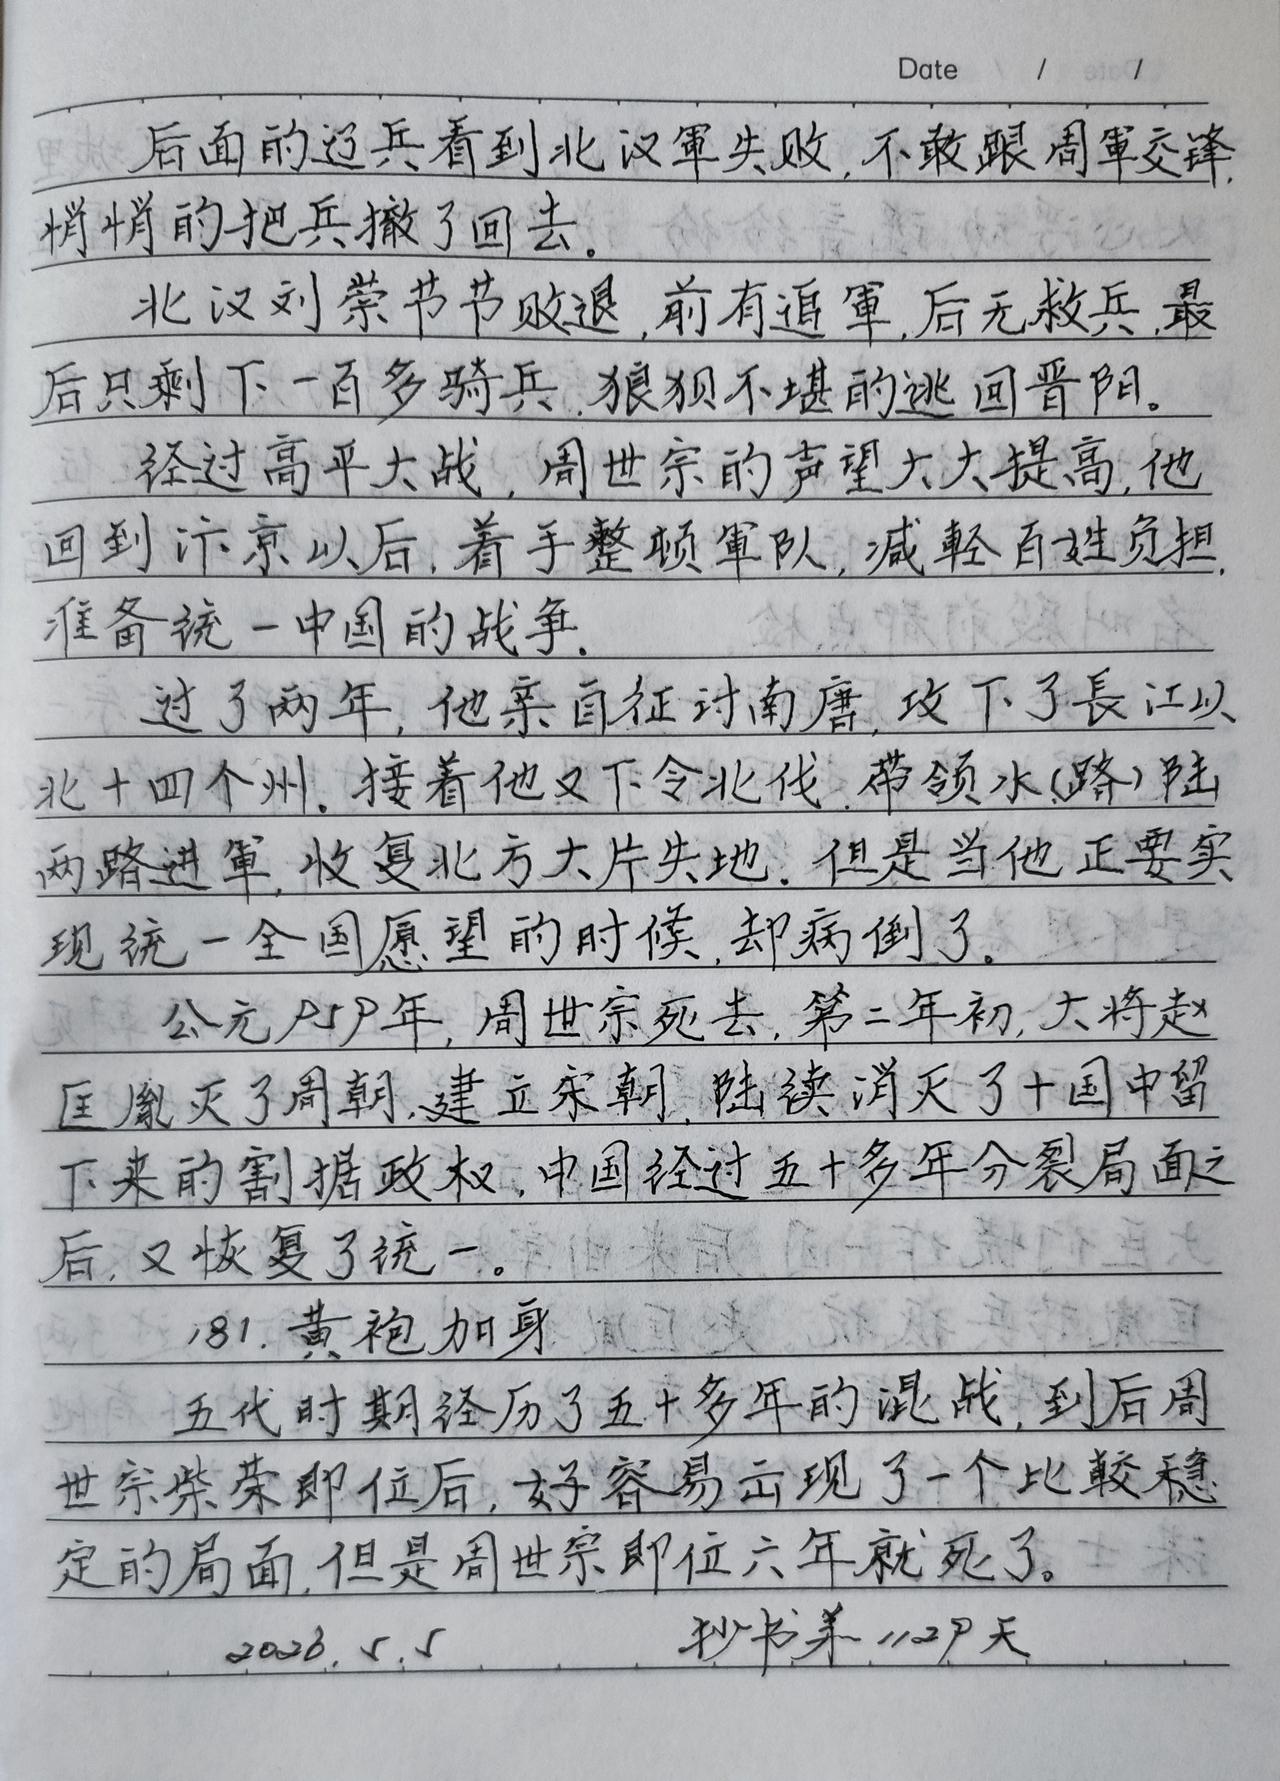 Date / /
后面的辽兵看到北汉軍失败,不敢跟周軍交锋,
悄悄的把兵撤了回去。
北汉刘崇节节败退,前有追軍,后无救兵,最
后只剩下一百多骑兵,狼狈不堪的逃回晋阳。
经过高平大战,周世宗的声望大大提高,他
回到汴京以后,着手整顿軍队,减輕百姓负担,
准备统一中国的战争.
过了两年,他亲自征讨南唐,攻下了長江以
北十四个州。接着他又下令北伐,带领水(路)陆
两路进軍,收复北方大片失地.但是当他正要实
现统一全国愿望的时候,却病倒了。
公元959年,周世宗死去,第二年初,大将赵
匡胤灭了周朝,建立宋朝,陆续消灭了十国中留
下来的割据政权,中国经过五十多年分裂局面之
后,又恢复了统一。
181.黄袍加身
五代时期经历了五十多年的混战,到后周
世宗柴荣即位后,好容易出现了一个比較稳
定的局面,但是周世宗即位六年就死了。
2026.5.5 抄书第1129天